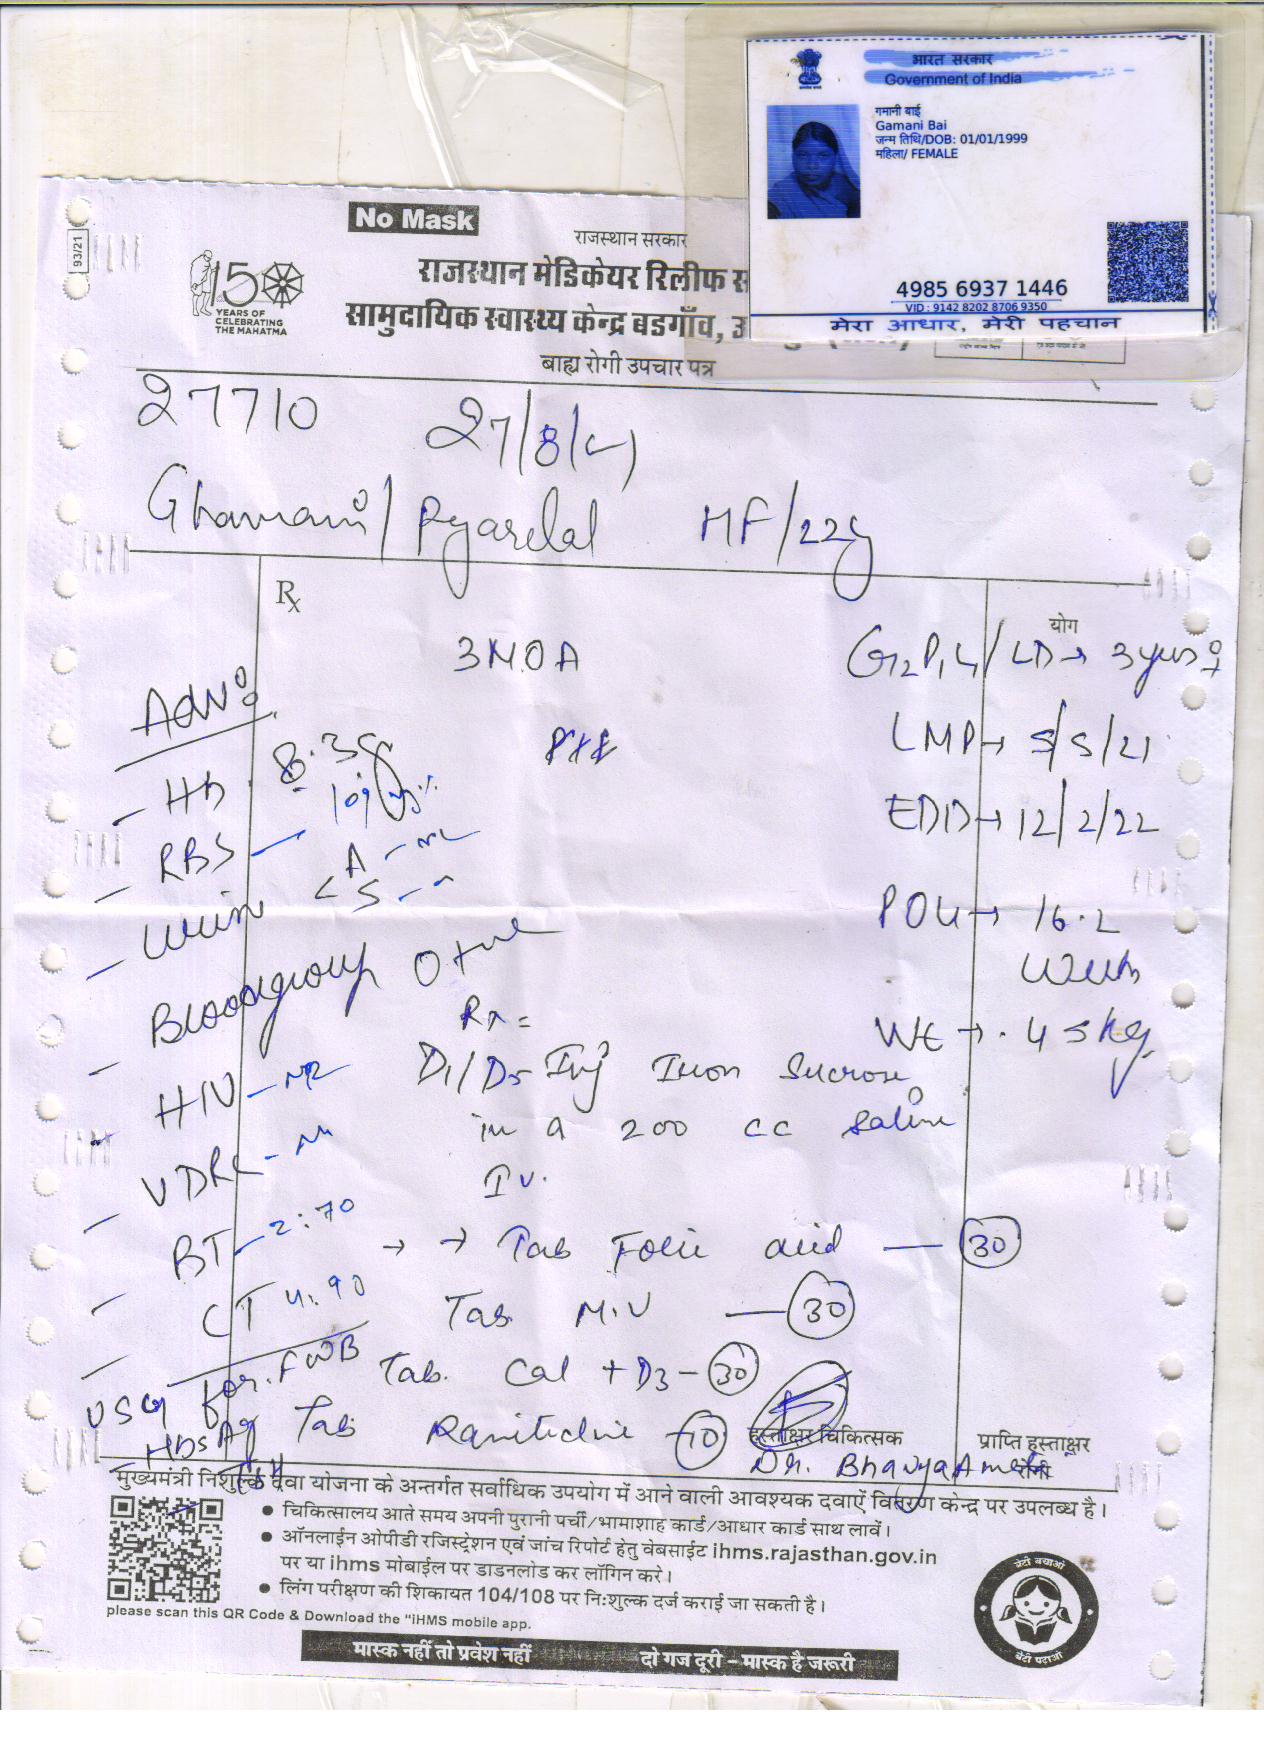 भारत सरकार
Government of India
गमानी बाई
Gamani Bai
जन्म तिथि/DOB: 01/01/1999
महिला/ FEMALE
4985 6937 1446
VID : 9142 8202 8706 9350
मेरा आधार, मेरी पहचान
93/21
No Mask
राजस्थान सरकार
150
YEARS OF
CELEBRATING
THE MAHATMA
राजस्थान मेडिकेयर रिलीफ स
सामुदायिक स्वास्थ्य केन्द्र बडगाँव, उ
बाह्य रोगी उपचार पत्र
27710 27/8/21
Ghamani / Pyarelal MF/22y
Rx
योग
3 M.O.A
G2P1L1 / LD → 3 years
LMP → 5/5/21
EDD → 12/2/22
POG → 16.2
Weeks
Wt → 45 kg
Adv:
- Hb 8.3g
- RBS - 109 mg%
- Urine < A - NL
S - "
- Bloodgroup O +ve
- HIV - NR
- VDRL -
- BT - 2:70
- CT 4:90
USG for FWB
HbsAg
Rx =
D1/D5 Inj Iron Sucrose
in a 200 cc saline
IV.
→ → Tab Folic acid — 30
Tab. M.V — 30
Tab. Cal + D3 - 30
Tab Ranitidine - 10
हस्ताक्षर चिकित्सक
Dr. Bhavya
प्राप्ति हस्ताक्षर
रोगी
मुख्यमंत्री निशुल्क दवा योजना के अन्तर्गत सर्वाधिक उपयोग में आने वाली आवश्यक दवाऐं वितरण केन्द्र पर उपलब्ध है।
• चिकित्सालय आते समय अपनी पुरानी पर्ची/भामाशाह कार्ड/आधार कार्ड साथ लावें।
• ऑनलाईन ओपीडी रजिस्ट्रेशन एवं जांच रिपोर्ट हेतु वेबसाईट ihms.rajasthan.gov.in
पर या ihms मोबाईल पर डाडनलोड कर लॉगिन करे।
• लिंग परीक्षण की शिकायत 104/108 पर निःशुल्क दर्ज कराई जा सकती है।
please scan this QR Code & Download the "iHMS mobile app.
बेटी बचाओ
बेटी पढ़ाओ
मास्क नहीं तो प्रवेश नहीं दो गज दूरी – मास्क है जरूरी